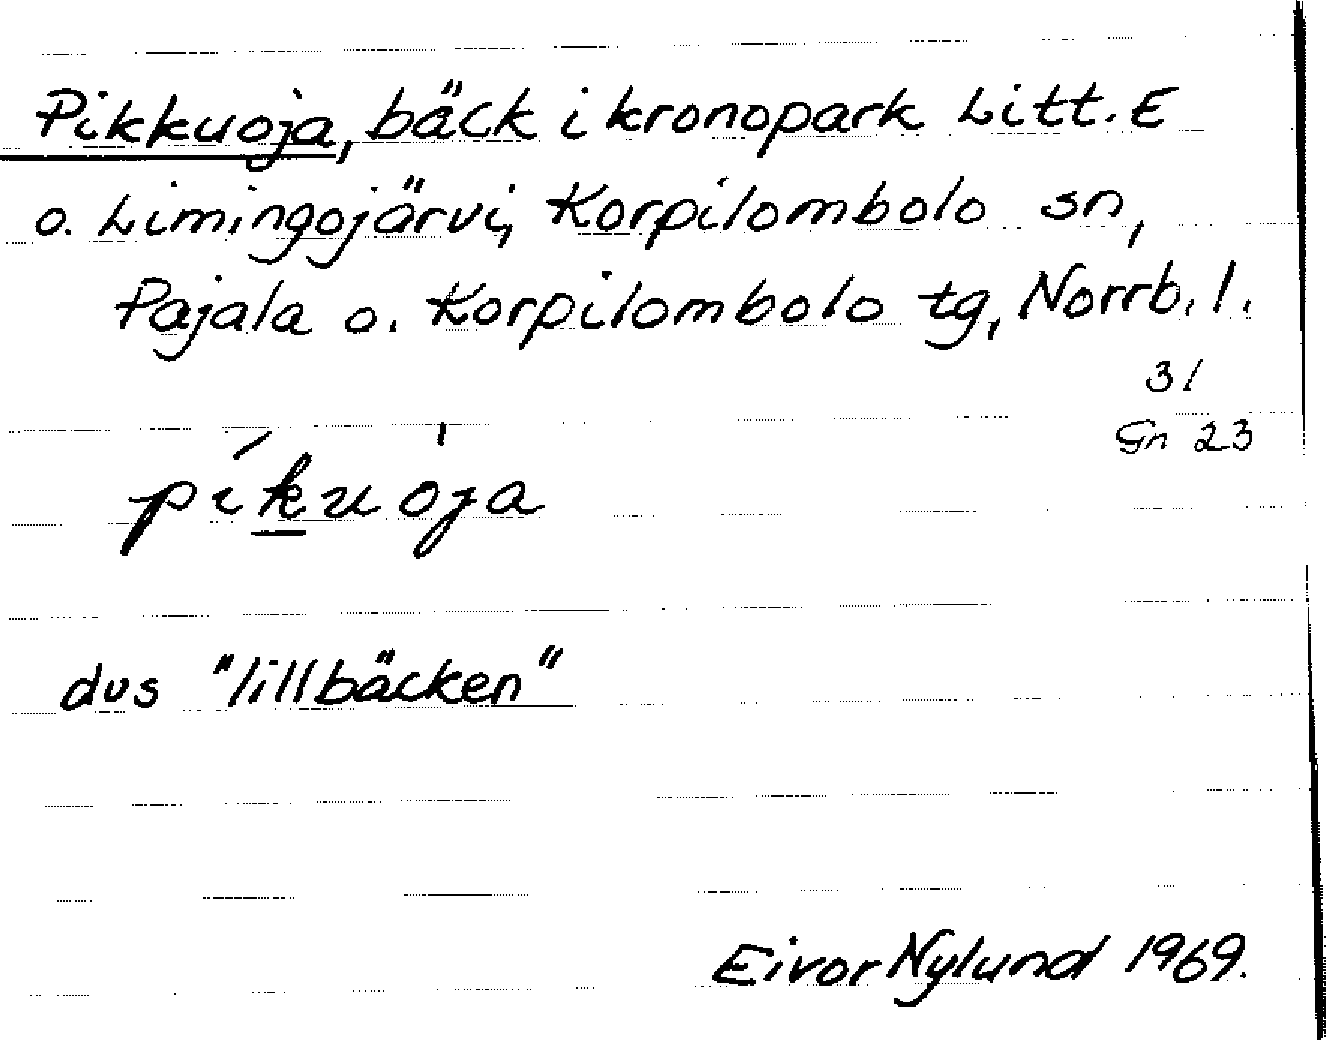 Pikkuoja, bäck i kronopark Litt. E
o. Limingojärvi, Korpilombolo sn,
Pajala o. Korpilombolo tg, Norrb. l.
31
Gn 23
píkuo̍ja
dvs "lillbäcken"
Eivor Nylund 1969.